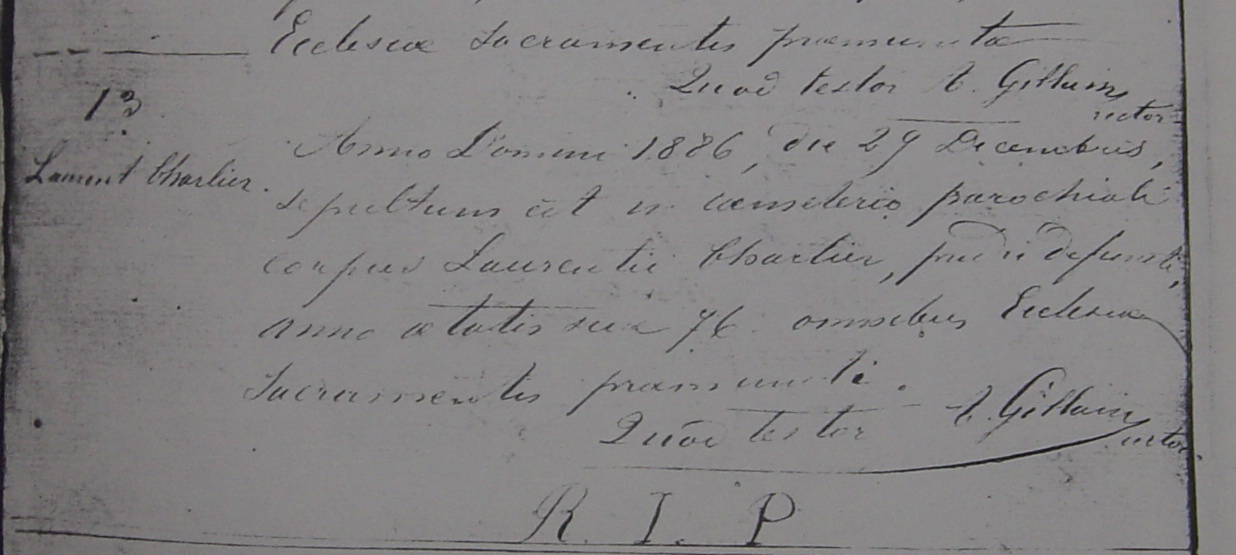 Ecclesiæ Sacramentis præmunitæ
Quod testor A. Gillain
rector
13
Laurent Charlier.
Anno Domini 1886, die 29 Decembris,
sepultum est in cœmeterio parochiali
corpus Laurentii Charlier, pridie defuncti,
anno ætatis suæ 76 omnibus Ecclesiæ
Sacramentis præmuniti.
Quod testor A. Gillain
rector.
R. I. P